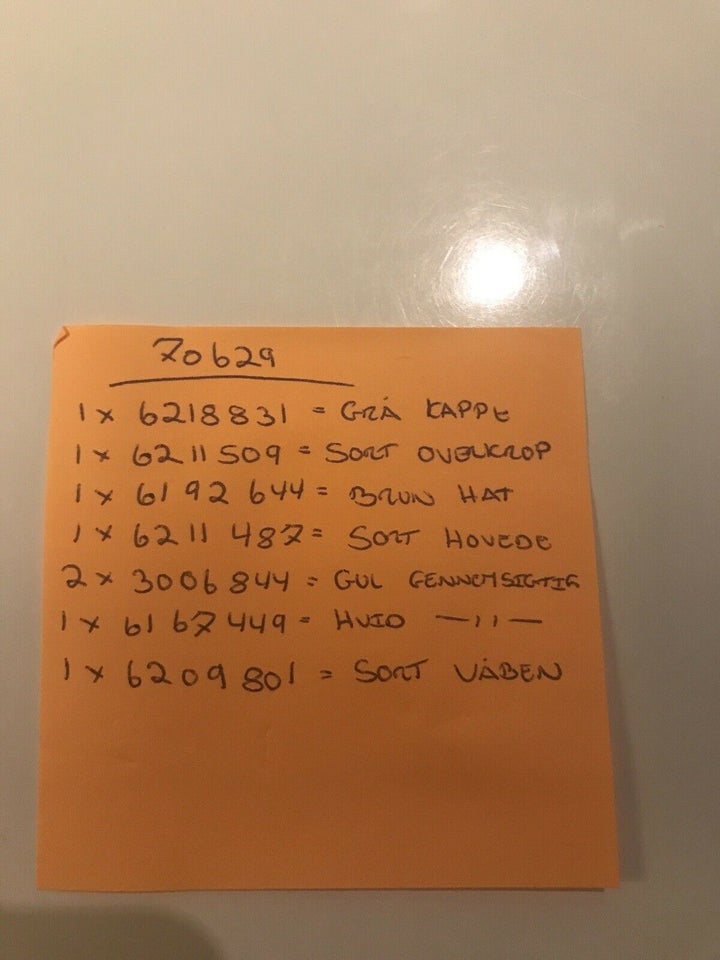 70629
1 x 6218831 = GRÅ KAPPE
1 x 6211509 = SORT OVERKROP
1 x 6192644 = BRUN HAT
1 x 6211487 = SORT HOVEDE
2 x 3006844 = GUL GENNEMSIGTIG
1 x 6167449 = HVID —,,—
1 x 6209801 = SORT VÅBEN